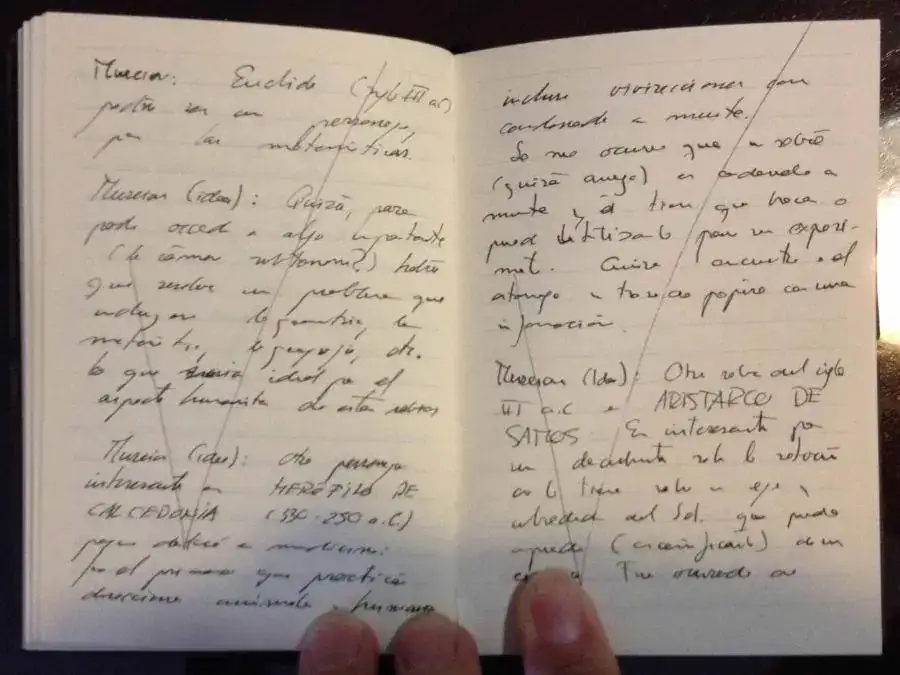 Murcia: Euclides (siglo III a.C)
podría ser un personaje,
por las matemáticas.
Murcia (idea): Quizá, para
poder acceder a algo importante
(la cámara subterránea?) habría
que resolver un problema que
incluyera la geometría, la
matemática, la geografía, etc.
lo que sería ideal por el
aspecto humanista de estos sabios
Murcia (idea): Otro personaje
interesante es HERÓFILO DE
CALCEDONIA (330-250 a.C.)
porque dedicó a medicina:
fue el primero que practicó
disecciones animales y humanas
incluso vivisecciones con
condenados a muerte.
Se me ocurre que un sabio
(quizá amigo) es condenado a
muerte y él tiene que hacer o
puede utilizarlo para su experi-
mento. Quiere
a través papiro con una
información.
(Idea): Otro sabio del siglo
III a.C es ARISTARCO DE
SAMOS. Es interesante por
un descubrimiento sobre la rotación
de la tierra sobre su eje y
alrededor del Sol. que puede
(escenificarlo) de un
Fue acusado de